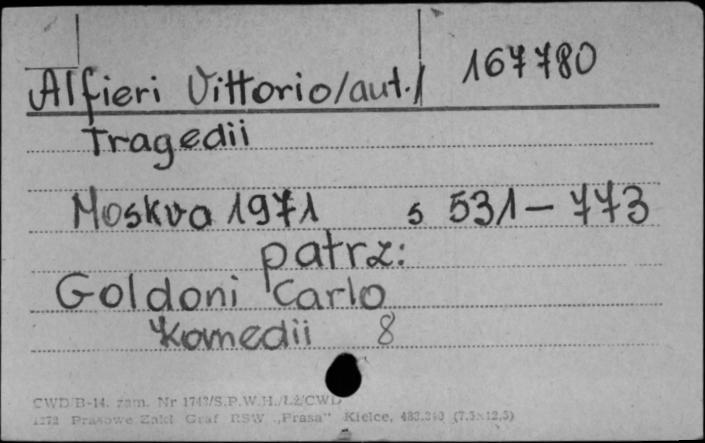 Alfieri Vittorio/aut./ 167780
Tragedii
Moskva 1971 s 531-773
patrz:
Goldoni Carlo
Komedii 8
CWD/B-14. zam. Nr 1742/S.P.W.H./LŻ/CWD
Prasowe Zakł. Graf RSW „Prasa" Kielce,